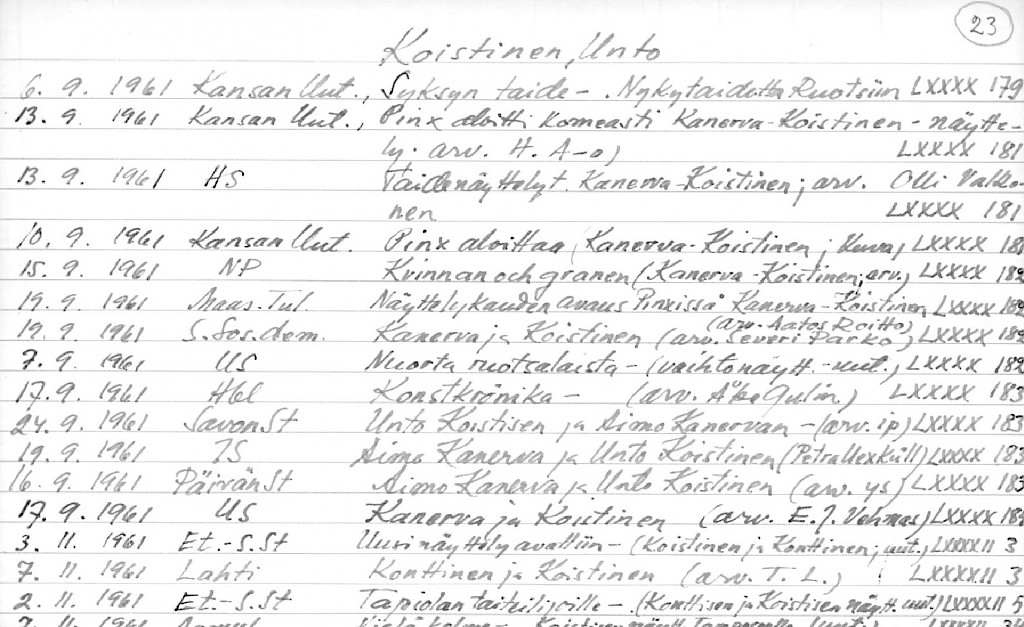 23
Koistinen, Unto
6. 9. 1961 Kansan Uut., Syksyn taide - Nykytaidetta Ruotsiin LXXXX 179
13. 9. 1961 Kansan Uut., Pinx aloitti komeasti Kanerva-Koistinen - näytte-
ly. arv. H. A-o) LXXXX 181
13. 9. 1961 HS Taidenäyttelyt. Kanerva-Koistinen; arv. Olli Valko-
nen LXXXX 181
10. 9. 1961 Kansan Uut. Pinx aloittaa (Kanerva-Koistinen; kuva) LXXXX 181
15. 9. 1961 NP Kvinnan och granen (Kanerva-Koistinen; arv.) LXXXX 182
19. 9. 1961 Maas. Tul. Näyttelykauden avaus Pinxissä Kanerva-Koistinen LXXXX 182
(arv. Aatos Roitto)
19. 9. 1961 S. Sos. dem. Kanerva ja Koistinen (arv. Severi Parko) LXXXX 182
7. 9. 1961 US Nuorta ruotsalaista - (vaihtonäytt. - uut.) LXXXX 182
17. 9. 1961 Hbl Konstkrönika - (arv. Åke Gulin) LXXXX 183
24. 9. 1961 Savon St Unto Koistisen ja Aimo Kanervan - (arv. ip) LXXXX 183
19. 9. 1961 IS Aimo Kanerva ja Unto Koistinen (Petra Uexküll) LXXXX 183
16. 9. 1961 Päivän St Aimo Kanerva ja Unto Koistinen (arv. ys) LXXXX 183
17. 9. 1961 US Kanerva ja Koistinen (arv. E. J. Vehmas) LXXXX 184
3. 11. 1961 Et.-S. St Uusi näyttely avattiin - (Koistinen ja Konttinen; uut.) LXXXXII 3
7. 11. 1961 Lahti Konttinen ja Koistinen (arv. T. L.) LXXXXII 3
2. 11. 1961 Et.-S. St Tapiolan taiteilijoille - (Konttisen ja Koistisen näytt. uut.) LXXXXII 5